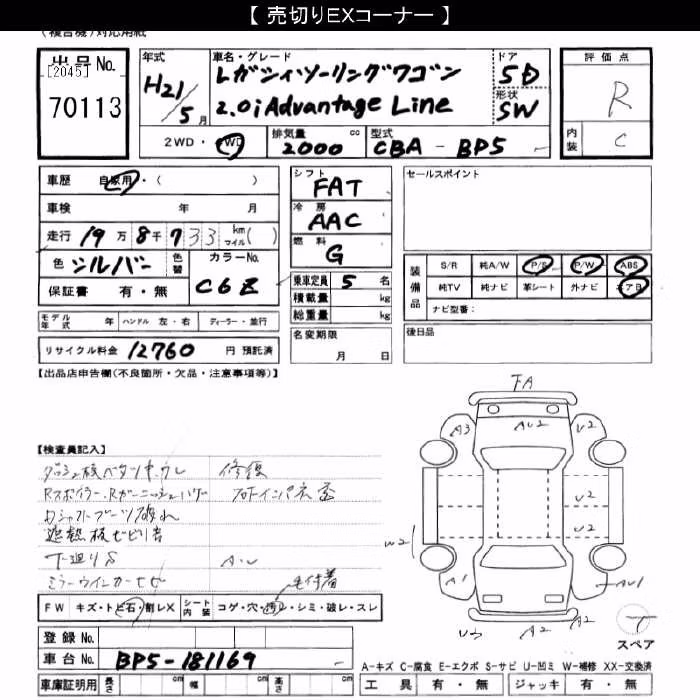 【 売切りEXコーナー 】
(複合機)対応用紙
出品No.
[2045]
70113
年式
H21/5月
車名・グレード
レガシィツーリングワゴン
2.0i Advantage Line
ドア
5D
形状
SW
評価点
R
内装
C
2WD・4WD
排気量 2000 cc
型式 CBA - BP5
車歴 自家用・( )
車検 年 月
走行 19万8千733 km マイル( )
色 シルバー 色替
カラーNo. C6Z
保証書 有・無
シフト FAT
冷房 AAC
燃料 G
乗車定員 5 名
積載量 kg
総重量 kg
セールスポイント
装備品
S/R 純A/W P/S P/W ABS
純TV 純ナビ 革シート 外ナビ エアB
ナビ型番:
モデル年式 年 ハンドル 左・右 ディーラー・並行
リサイクル料金 12760 円 預託済
名変期限 月 日
後日品
【出品店申告欄(不良箇所・欠品・注意事項等)】
FA
A3 AU2 U2
【検査員記入】
修復
Rスポイラー、Rガーニッシュ
U2
U2
W2
遮熱板ビビリ音
下廻りS
ミラーウインカー
A1 AU1
毛付着
FW キズ・トビ石・割レX シート内装 コゲ・穴・汚レ・シミ・破レ・スレ
A2 A2
スペア
登録No.
車台No. BP5-181169
A-キズ C-腐食 E-エクボ S-サビ U-凹ミ W-補修 XX-交換済
車庫証明用 長さ cm 幅 cm 高さ cm
工具 有・無 ジャッキ 有・無